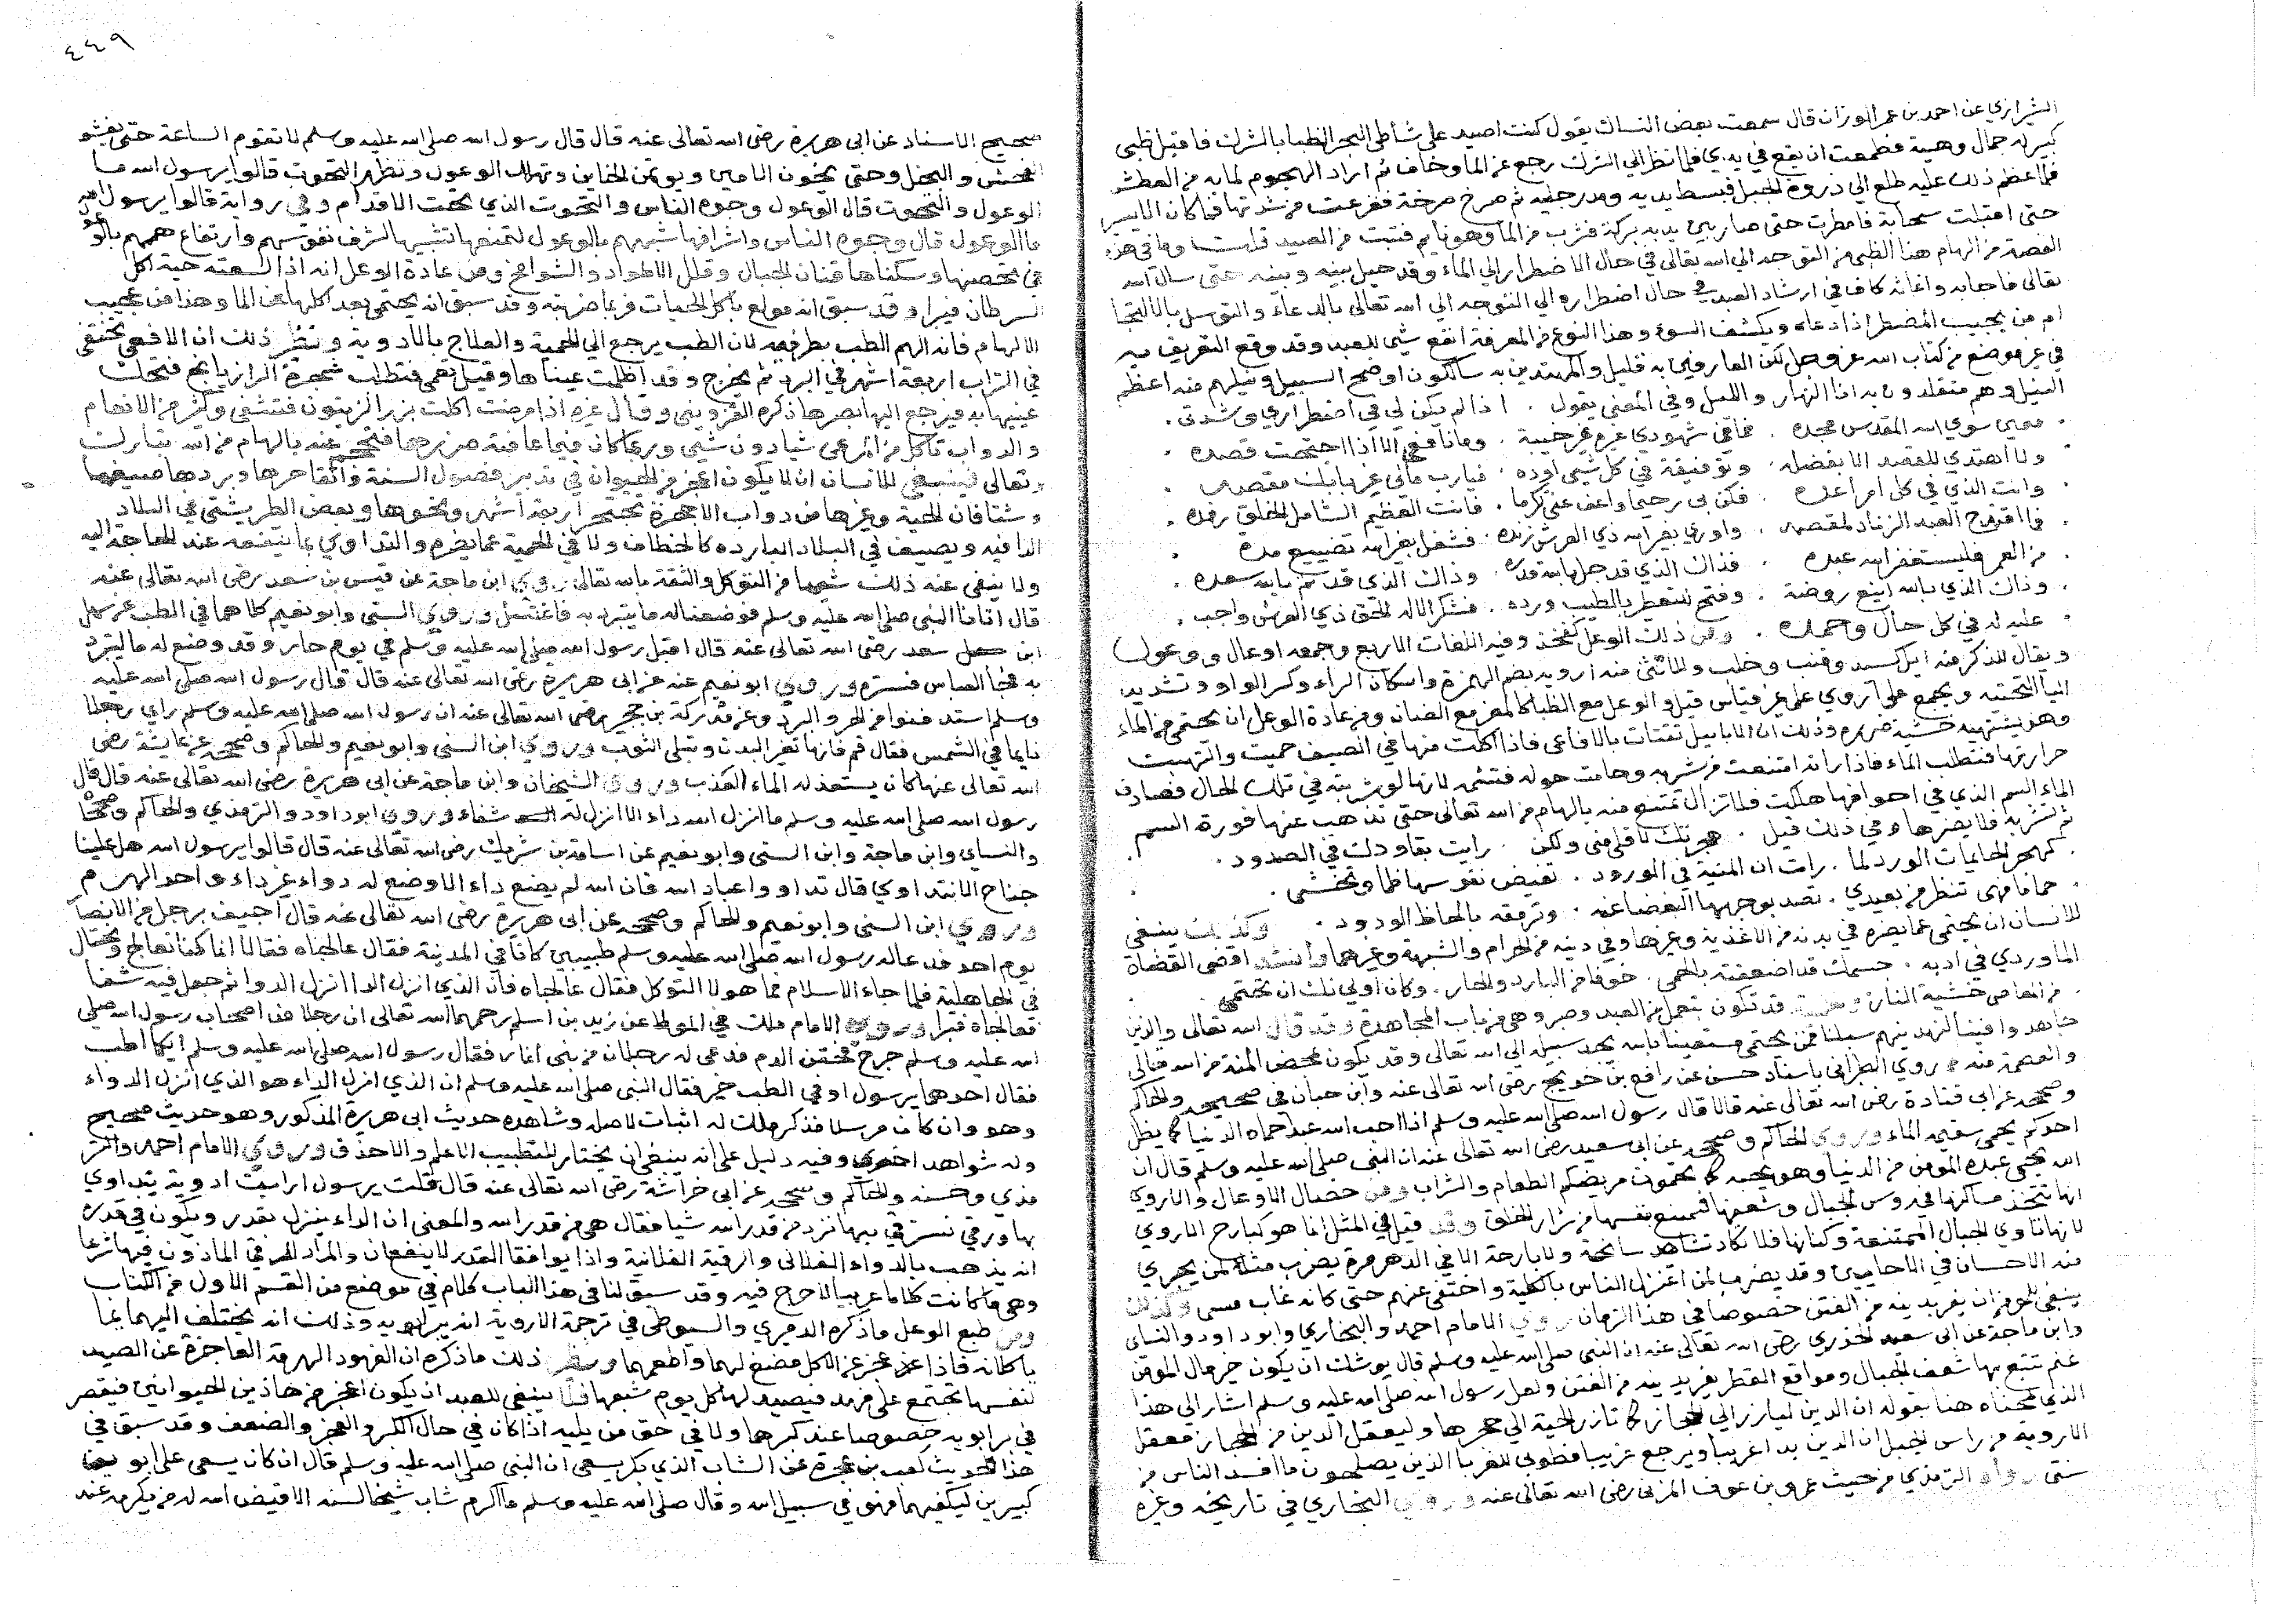 الشيرازي عن احمد بن عمر الوزان قال سمعت بعض النساك يقول كنت اصيد على شاطى البحر الظبا بالشرك فاقبل ظبي
كبير له جمال وهيبة فطمعت ان يقع في يدي فلما نظر الي الشرك رجع عن الما وخاف ثم اراد الهجوم لما به من العطش
فلما عظم ذلك عليه طلع الي ذروة الجبل فبسط يديه ومد رجليه ثم صرخ صرخة ففزعت من شدتها فما كان الا يسير
حتى اقبلت سحابة فامطرت حتى صار بين يديه بركة فشرب من الما وهو نايم فتبت من الصيد قلت وما في هذه
القصة من الهام هذا الظبي من التوجه الي الله تعالى في حال الاضطرار الي الماء وقد حيل بينه وبينه حتى سال الله
تعالى فاجابه واغاثه كاف في ارشاد العبد في حال اضطراره الي التوجه الي الله تعالى بالدعاء والتوسل بالالتجا
ام من يجيب المضطر اذا دعاه ويكشف السوء وهذا النوع من المعرفة انفع شي للعبد وقد وقع التعريف به
في غير موضع من كتاب الله عز وجل لكن العارفين به قليل والمهتدين به سالكون اوضح السبيل ونيلهم منه اعظم
النيل وهم متقلدون به انا النهار والليل وفي المعنى يقول . اذا لم يكن لي في اضطراري وشدتي .
. معين سوي الله المقدس مجده . فما في شهودي غيره غير خيبة . وما نافعي الا اذا احتجت قصده .
. ولا اهتدي للقصد الا بفضله . وتوفيقه في كل شي اوده . فيارب مالي غير بابك مقصد .
. وانت الذي في كل امر اعده . فكن بي رحيما واعف عني تكرما . فانت العظيم الشامل الخلق رفده .
. فما اقتدح العبد الزناد لمقصد . واوري بغير الله ذي العرش زنده . فشغل بغير الله تضييع مدة .
. من العمر فليستغفر الله عبده . فذاك الذي قد جل بالله قدره . وذاك الذي قد تم بالله سعده .
. وذاك الذي بالله اينع روضة . وفتح للتعطر بالطيب ورده . فشكر الاله الحق ذي العرش واجب .
. عليه له في كل حال وحمده . ومن ذلك الوعل كفخذ وفيه اللغات الاربع وجمعه اوعال ووعول
ويقال للذكر منه ايل كسيد وقنب وخلب وللانثى منه اروية بضم الهمزة واسكان الراء وكسر الواو وتشديد
اليا التحتية ويجمع على اروي على غير قياس قيل والوعل مع الظبا كالمعز مع الضان ومن عادة الوعل ان يحتمي من الماء
وهو يشتهيه خشية ضرره وذلك ان الاياييل تقتات بالافاعي فاذا اكلت منها في الصيف حميت والتهبت
حرارتها فتطلب الماء فاذا راته امتنعت من شربه وحامت حوله فتشمه لانها لو شربته في تلك الحال فصادف
الماء السم الذي في اجوافها هلكت فلا تزال تمتنع منه بالهام من الله تعالى حتى تذهب عنها فورة السم
ثم تشربه فلا يضرها وفي ذلك قيل . هجرتك لا قلى مني ولكن . رايت بقا ودك في الصدود .
. كهجر الحايمات الورد لما . رات ان المنية في الورود . تفيض نفوسها ظما وتخشى .
. حماما فهي تنظر من بعيدي . تصد بوجهها البغضا عنه . وترمقه بالحاظ الودود . وكذلك ينبغي
للانسان ان يحتمي عما يضره في بدنه من الاغذية وغيرها وفي دينه من الحرام والشبهة وغيرهما وانشد اقضى القضاة
الماوردي في ادبه . جسمك قد اضعفته بالحمى . خوفا من البارد والحار . وكان اولي بك ان تحتمي
. من المعاصي خشية النار . قد تكون بتعمل من العبد وصبر وهي من باب المجاهدة وقد قال الله تعالى والذين
جاهدوا فينا لنهدينهم سبلنا فمن يحتمي مستعينا بالله يجد سبيله الي الله تعالى وقد يكون بمحض المنة من الله تعالى
والعصمة منه روي الطبراني باسناد حسن عن رافع بن خديج رضي الله تعالى عنه وابن حبان في صحيحه والحاكم
وصححه عن ابي قتادة رضي الله تعالى عنه قالا قال رسول الله صلى الله عليه وسلم اذا احب الله عبدا حماه الدنيا كما يظل
احدكم يحمي سقيمه الماء وروي الحاكم وصححه عن ابي سعيد رضي الله تعالى عنه ان النبي صلى الله عليه وسلم قال ان
الله يحمي عبده المومن من الدنيا وهو يحبه كما تحمون مريضكم الطعام والشراب ومن خصال الاوعال والاروي
انها تتخذ مساكنها في روس الجبال وشعفها فتمنع نفسها من شرار الخلق وقد قيل في المثل انما هو كبارح الاروي
لانها تاوي الجبال الممتنعة وكنانها فلا تكاد تشاهد سانحة ولا بارحة الا في الدهر مرة يضرب مثلا لمن يجري
منه الاحسان في الاحايين وقد يضربها لمن اعتزل الناس بالكلية واختفى عنهم حتى كانه غاب مسمى وكذلك
ينبغي للمومن ان يفر بدينه من الفتن خصوصا في هذا الزمان روي الامام احمد والبخاري وابو داود والنساي
وابن ماجة عن ابي سعيد الخدري رضي الله تعالى عنه ان النبي صلى الله عليه وسلم قال يوشك ان يكون خير مال المومن
غنم تتبع بها شعف الجبال ومواقع القطر يفر بدينه من الفتن ولعل رسول الله صلى الله عليه وسلم اشار الي هذا
الذي لمحناه هنا بقوله ان الدين ليارز الي الحجاز كما تارز الحية الي جحرها وليعقل الدين من الحجاز معقل
الاروية من راس الجبل ان الدين بدا غريبا ويرجع غريبا فطوبي للغربا الذين يصلحون ما افسد الناس من
سنتي رواه الترمذي من حيث عمرو بن عوف المزني رضي الله تعالى عنه وروي البخاري في تاريخه وغيره
٤٤٩
صحيح الاسناد عن ابي هريرة رضي الله تعالى عنه قال قال رسول الله صلى الله عليه وسلم لا تقوم الساعة حتى يفشو
الفحش والبخل وحتى يخون الامين ويوتمن الخاين وتهلك الوعول وتظهر التحوت قالوا يرسول الله ما
الوعول والتحوت قال الوعول وجوه الناس والتحوت الذي تحت الاقدام وفي رواية قالوا يرسول الله
ما الوعول قال وجوه الناس واشرافها شبههم بالوعول لتمنعها تشبيها لشرف نفوسهم وارتفاع هممهم بالوعول
في تحصنها وسكناها قنان الجبال وقلل الاطواد والشوامخ ومن عادة الوعل انه اذا لسعته حية اكل
السرطان فيبرا وقد سبق انه مولع باكل الحيات فربما ضربته وقد سبق انه يحتمي بعد اكلها عن الما وهذا من عجيب
الالهام فانه الهم الطب بطرفيه لان الطب يرجع الي الحمية والعلاج بالادوية ونظير ذلك ان الافعى تختفي
في التراب اربعة اشهر في البرد ثم تخرج وقد اظلمت عيناها وقيل تعمى فتطلب شجرة الرازيانج فتحك
عينيها به فيرجع اليها بصرها ذكره القزويني وقال غيره اذا مرضت اكلت بزر الزيتون فتشفى وكثير من الانعام
والدواب تاكل من المرعى شيا دون شي وربما كان فيما عافته ضررها فتحجم عنه بالهام من الله تبارك
وتعالى فينبغي للانسان ان لا يكون اعجز من الحيوان في تدبير فصول السنة واتقا حرها وبردها صيفها
وشتا فان الحية وغيرها من دواب الاجحرة تحتجر اربعة اشهر ونحوها وبعض الطير يشتي في البلاد
الدافيه ويصيف في البلاد البارده كالخطاف ولا في الحمية عما يضره والتداوي بما ينفعه عند الحاجة اليه
ولا ينفي عنه ذلك شيا من التوكل والثقة بالله تعالى روي ابن ماجة عن قيس بن سعد رضي الله تعالى عنه
قال اتانا النبي صلى الله عليه وسلم فوضعنا له ما يتبرد به فاغتسل وروي السني وابو نعيم كلاهما في الطب عن سهل
ابن سعد رضي الله تعالى عنه قال اقبل رسول الله صلى الله عليه وسلم في يوم حار وقد وضع له ما ليتبرد
به فجا العباس فستره وروي ابو نعيم عنه عن ابي هريرة رضي الله تعالى عنه قال قال رسول الله صلى الله عليه
وسلم استدفئوا من الحر والبرد وعن قدركة بن حجير رضي الله تعالى عنه ان رسول الله صلى الله عليه وسلم راي رجلا
نايما في الشمس فقال قم فانها تغير البدن وتبلي الثوب وروي ابن السني وابو نعيم والحاكم وصححه عن عايشة رضي
الله تعالى عنها كان يستعذ له الماء العذب وروي الشيخان وابن ماجة عن ابي هريرة رضي الله تعالى عنه قال قال
رسول الله صلى الله عليه وسلم ما انزل الله داء الا انزل له شفاء وروي ابو داود والترمذي والحاكم وصححا
والنساي وابن ماجة وابن السني وابو نعيم عن اسامة بن شريك رضي الله تعالى عنه قال قالوا يرسول الله هل علينا
جناح الا نتداوي قال تداووا عباد الله فان الله لم يضع داء الا وضع له دواء غير داء واحد الهرم
وروي ابن السني وابو نعيم والحاكم وصححه عن ابي هريرة رضي الله تعالى عنه قال اجيف برجل من الانصار
يوم احد فدعا له رسول الله صلى الله عليه وسلم طبيبين كانا في المدينة فقال عالجاه فقالا انما كنا نعالج ونحتال
في الجاهلية فلما جاء الاسلام فما هو الا التوكل فقال عالجاه فان الذي انزل الدا انزل الدوا ثم جعل فيه شفا
فعالجاه فبرا وروي الامام ملك في الموطا عن زيد بن اسلم رحمهما الله تعالى ان رجلا من اصحاب رسول الله صلى
الله عليه وسلم جرح فحقن الدم فدعي له رجلان من بني انمار فقال رسول الله صلى الله عليه وسلم ايكما اطب
فقال احدهما يرسول او في الطب خير فقال النبي صلى الله عليه وسلم ان الذي انزل الداء هو الذي انزل الدواء
وهو وان كان مرسلا فذكر ملك له اثبات لاصله وشاهده حديث ابي هريرة المذكور وهو حديث صحيح
وله شواهد اخري وفيه دليل على انه ينبغي ان يختار للتطبيب الاعلم والاحذق وروي الامام احمد والتر
مذي وحسنه والحاكم وصححه عن ابي خزامة رضي الله تعالى عنه قال قلت يرسول ارايت ادوية نتداوي
بها ورقى نسترقي بها اترد من قدر الله شيا فقال هي من قدر الله والمعنى ان الداء ينزل بقدر ويكون في قدره
انه يذهب بالدواء الفلاني والرقية الفلانية واذا لم يوافقا القدر لا ينفعان والمراد الرقى الماذون فيها شرعا
وهي ما كانت كلاما عربيا لا حرج فيه وقد سبق لنا في هذا الباب كلام في موضع من القسم الاول من الكتاب
ومن طبع الوعل ما ذكره الدميري والسيوطي في ترجمة الاروية انه يبر ابويه وذلك انه يختلف اليهما بما
ياكلانه فاذا عجز عن الاكل مضغ لهما واطعمهما ونظير ذلك ما ذكره ان الفهود الهرمة العاجزة عن الصيد
لنفسها تجتمع على فهد فيصيد لها كل يوم شبعها فلا ينبغي للعبد ان يكون اعجز من هاذين الحيوانين فيقصر
في بر ابويه خصوصا عند كبرهما ولا في حق من يليه اذا كان في حال الكبر والعجز والضعف وقد سبق في
هذا الحديث كعب بن عجرة عن الشاب الذي بكر يسعى ان النبي صلى الله عليه وسلم قال ان كان يسعى على ابوين
كبيرين ليكفيهما فهو في سبيل الله وقال صلى الله عليه وسلم ما اكرم شاب شيخا لسنه الا قيض الله له من يكرمه عند